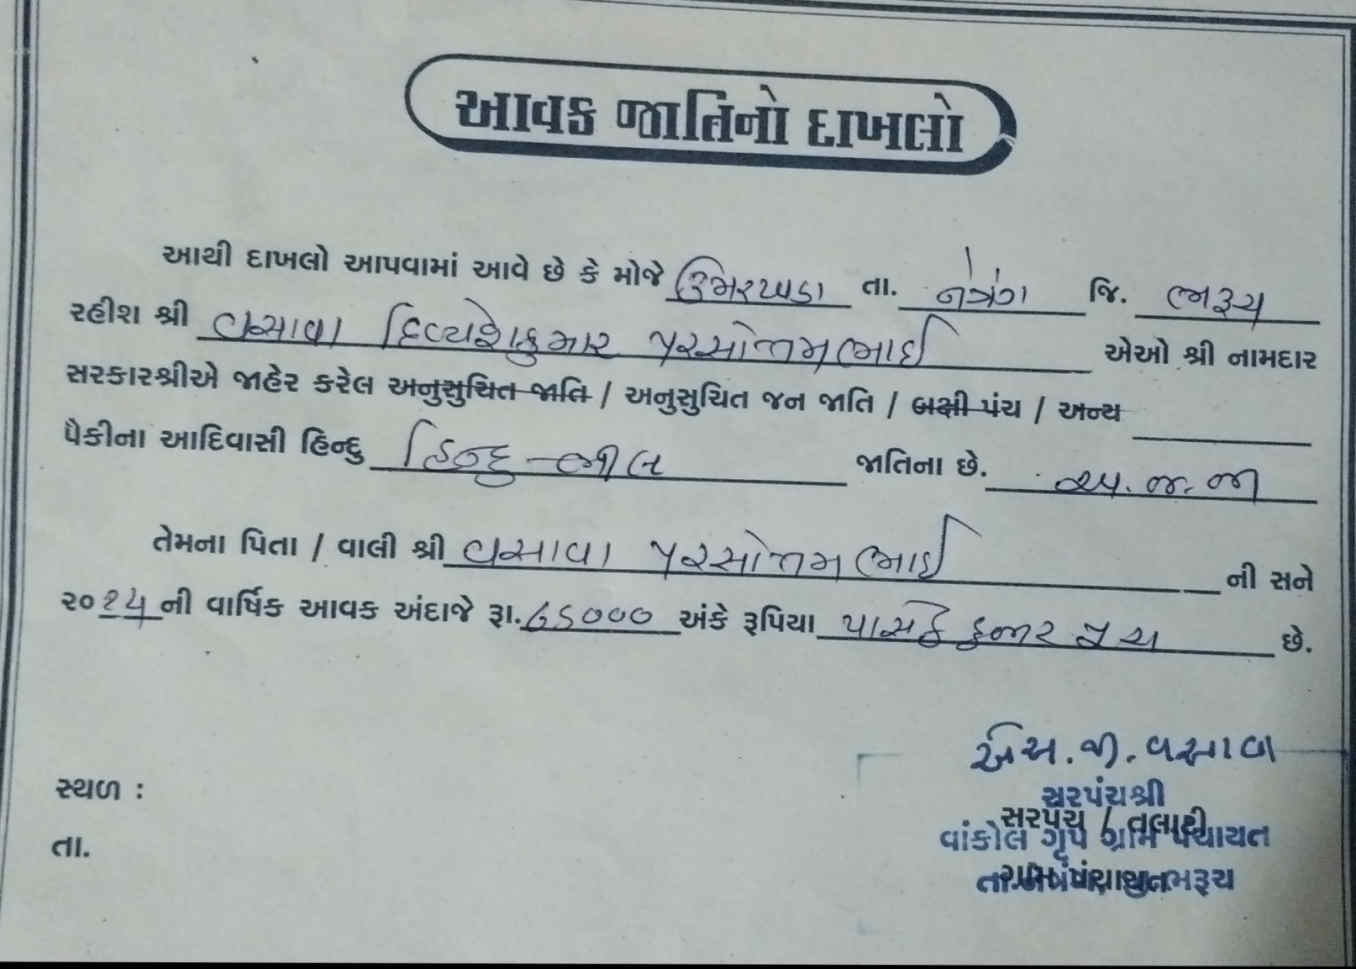 આવક જાતિનો દાખલો
આથી દાખલો આપવામાં આવે છે કે મોજે ઉમરખાડા તા. નેત્રંગ જિ. ભરૂચ
રહીશ શ્રી વસાવા દિવ્યેશકુમાર પરસોત્તમભાઈ એઓ શ્રી નામદાર
સરકારશ્રીએ જાહેર કરેલ અનુસુચિત જાતિ / અનુસુચિત જન જાતિ / બક્ષી પંચ / અન્ય
પૈકીના આદિવાસી હિન્દુ હિન્દુ - ભીલ જાતિના છે. અ.જ.જા
તેમના પિતા / વાલી શ્રી વસાવા પરસોત્તમભાઈ ની સને
૨૦૨૫ ની વાર્ષિક આવક અંદાજે રૂા. ૬૫૦૦૦ અંકે રૂપિયા પાસઠ હજાર પુરા છે.
એચ.જી.વસાવા
સ્થળ :
સરપંચશ્રી
સરપંચ / તલાટી
વાંકોલ ગૃપ ગ્રામ પંચાયત
તા.
ગ્રામ પંચાયત
ભરૂચ